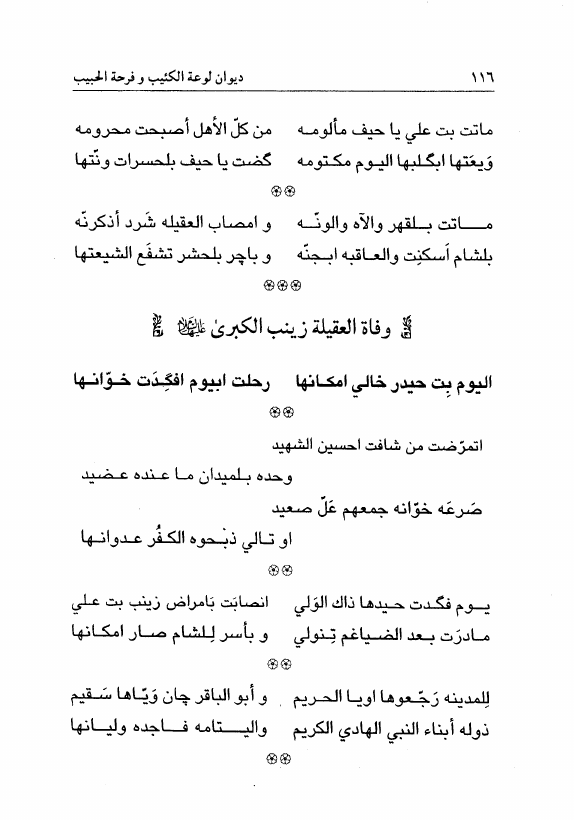 ١١٦ ديوان لوعة الكئيب و فرحة الحبيب
ماتت بت علي يا حيف مألومـه من كلّ الأهل أصبحت محرومه
وَيعَتها ابگلبها اليوم مكتومه گضت يا حيف بلحسرات ونّتها
مـــاتت بــلقهر والآه والونّــه و امصاب العقيله شَرد أذكرنّه
بلشام اَسكنِت والعـاقبه ابـجنّه و باچر بلحشر تشفَع الشيعتها
وفاة العقيلة زينب الكبرىٰ
اليوم بِت حيدر خالي امكـانها رحلت ابيوم افگِدَت خـوّانـها
اتمرّضت من شافت احسين الشهيد
وحده بـلميدان مـا عـنده عـضيد
صَـرعَه خوّانه جمعهم عَلّ صعيد
او تـالي ذبْـحوه الكـفُر عـدوانـها
يــوم فگـدت حـيدها ذاك الوَلي انصابَت بَامراض زينب بت علي
مـادرَت بـعد الضـياغم تِـنولي و بأسر لِـلشام صـار امكـانها
لِلمدينه رَجّـعوها اويـا الحـريم و أبو الباقر چان وَيّـاها سَـقيم
ذوله أبناء النبي الهادي الكريم واليـــتامه فـاجده وليـانها